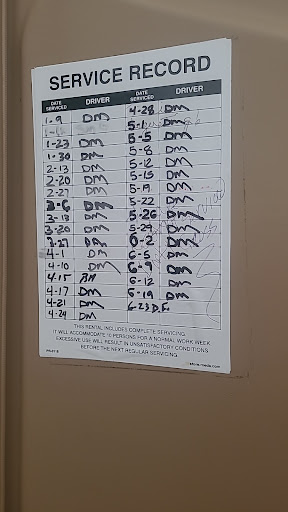 SERVICE RECORD
DATE SERVICED DRIVER DATE SERVICED DRIVER
1-9 DM 4-28 DM
5-1 DM
1-23 DM 5-5 DM
1-30 DM 5-8 DM
2-13 DM 5-12 DM
2-20 DM 5-15 DM
2-27 DM 5-19 DM
3-6 DM 5-22 DM
3-13 DM 5-26 DM
3-20 DM 5-29 DM
3-27 DM 6-2 DM
4-1 DM 6-5 DM
4-10 DM 6-9 DM
4-15 6-12 DM
4-17 DM 6-19 DM
4-21 DM 6-23 D.F.
4-24 DM
THIS RENTAL INCLUDES COMPLETE SERVICING.
IT WILL ACCOMMODATE 10 PERSONS FOR A NORMAL WORK WEEK.
EXCESSIVE USE WILL RESULT IN UNSATISFACTORY CONDITIONS
BEFORE THE NEXT REGULAR SERVICING.